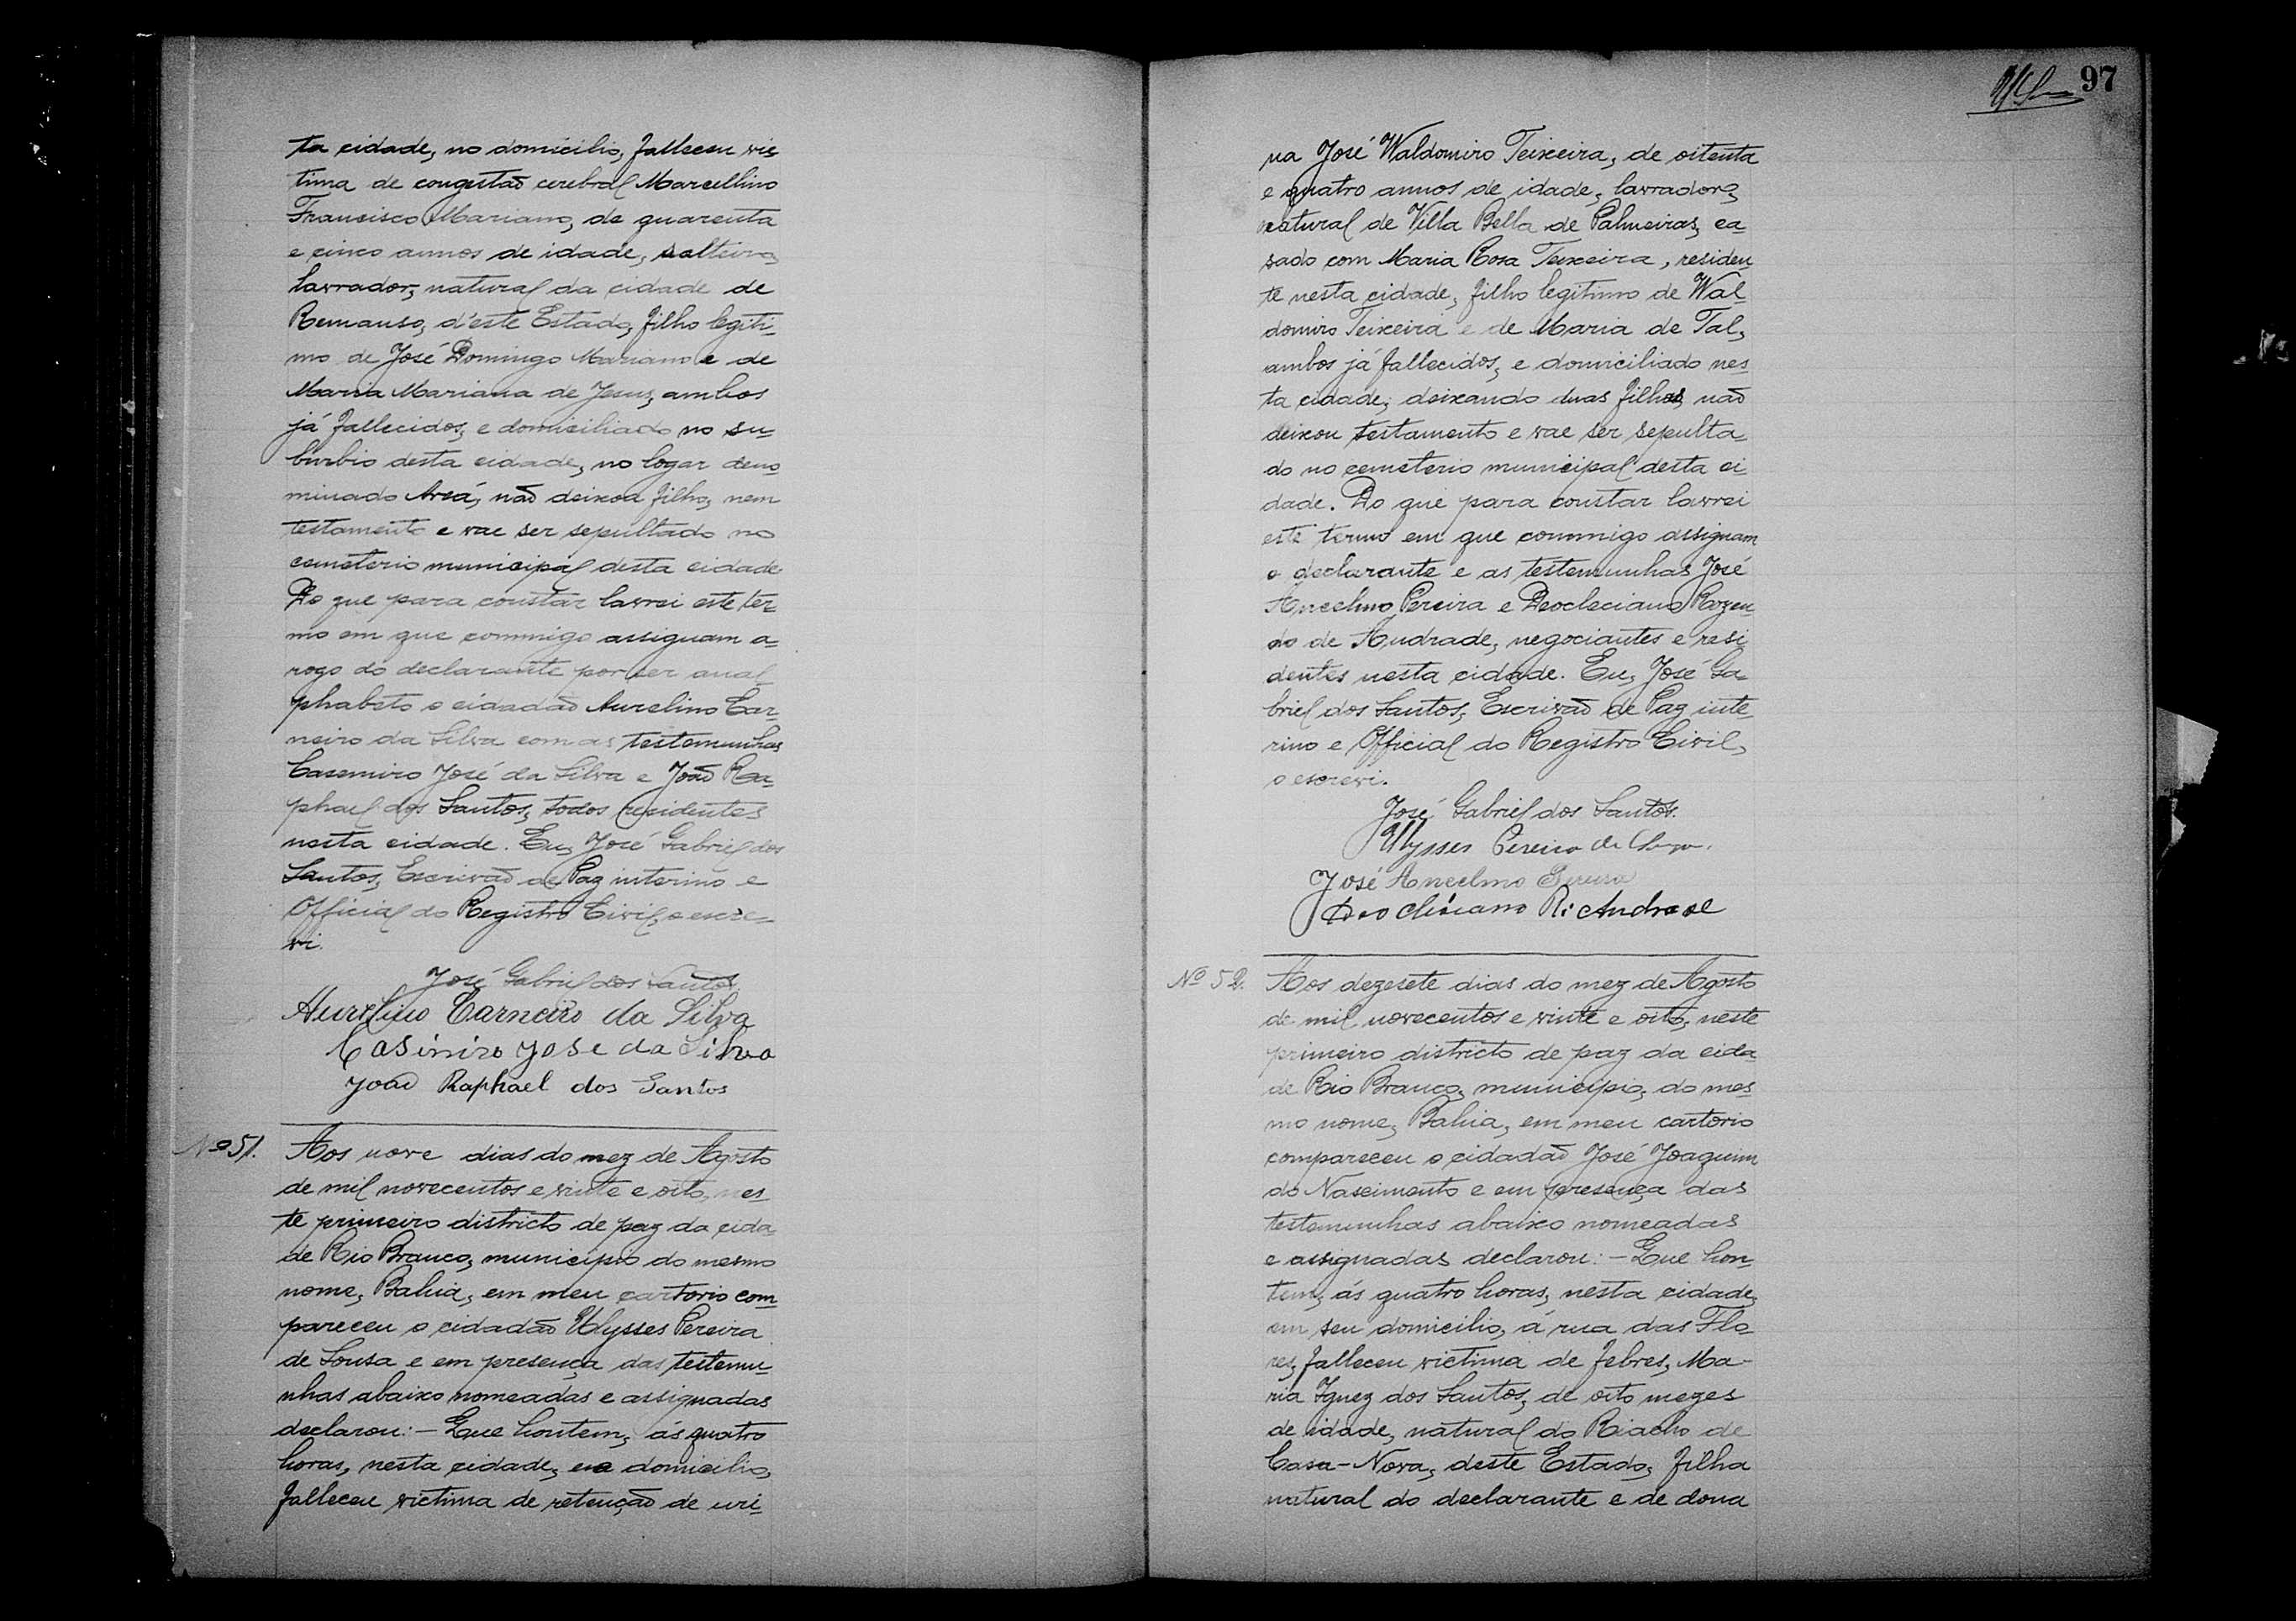 ta cidade, no domicilio, falleceu vic
tima de congestão cerebral Marcellino
Francisco Mariano, de quarenta
e cinco annos de idade, solteiro,
lavrador, natural da cidade de
Remanso, d'este Estado, filho legiti-
mo de José Domingo Mariano e de
Maria Mariana de Jesus, ambos
já fallecidos, e domiciliado no su-
burbio desta cidade, no logar deno
minado Areá, não deixou filho, nem
testamento e vae ser sepultado no
cemeterio municipal desta cidade.
Do que para constar lavrei este ter-
mo em que commigo assignam a-
rogo do declarante por ser anal
phabeto o cidadão Aurelino Car-
neiro da Silva com as testemunhas
Casemiro José da Silva e João Ra-
phael dos Santos, todos residentes
nesta cidade. Eu, José Gabriel dos
Santos, Escrivão de Paz interino e
Official do Registro Civil, o escre-
vi.
José Gabriel dos Santos.
Aurelino Carneiro da Silva
Casimiro Jose da Silva
João Raphael dos Santos
Nº 51. Aos nove dias do mez de Agosto
de mil novecentos e vinte e oito, nes
te primeiro districto de paz da cida
de Rio Branco, municipio do mesmo
nome, Bahia, em meu cartorio com
pareceu o cidadão Ulysses Pereira
de Sousa e em presença das testemu-
nhas abaixo nomeadas e assignadas
declarou: - Que hontem, ás quatro
horas, nesta cidade, em domicilio,
falleceu victima de retenção de uri-
97
na José Waldomiro Teixeira, de oitenta
e quatro annos de idade, lavrador,
natural de Villa Bella de Palmeiras, ca-
sado com Maria Rosa Teixeira, residen
te nesta cidade, filho legitimo de Wal-
domiro Teixeira e de Maria de Tal,
ambos já fallecidos, e domiciliado nes-
ta cidade, deixando duas filhas, não
deixou testamento e vae ser sepulta-
do no cemeterio municipal desta ci-
dade. Do que para constar lavrei
este termo em que commigo assignam
o declarante e as testemunhas José
Ancelmo Pereira e Deocleciano Rozen
do de Andrade, negociantes e resi-
dentes nesta cidade. Eu, José Ga-
briel dos Santos, Escrivão de Paz inte
rino e Official do Registro Civil,
o escrevi.
José Gabriel dos Santos.
Ulysses Pereira de
José Ancelmo Pereira
Deocliciano R. Andrade
Nº 52. Aos dezesete dias do mez de Agosto
de mil novecentos e vinte e oito, neste
primeiro districto de paz da cida
de Rio Branco, municipio, do mes-
mo nome, Bahia, em meu cartorio
compareceu o cidadão José Joaquim
do Nascimento e em presença das
testemunhas abaixo nomeadas
e assignadas declarou: - Que hon-
tem, ás quatro horas, nesta cidade,
em seu domicilio, á rua das Flo-
res, falleceu victima de febres, Ma-
ria Ignez dos Santos, de oito mezes
de idade, natural do Riacho de
Casa-Nova, deste Estado, filha
natural do declarante e de dona